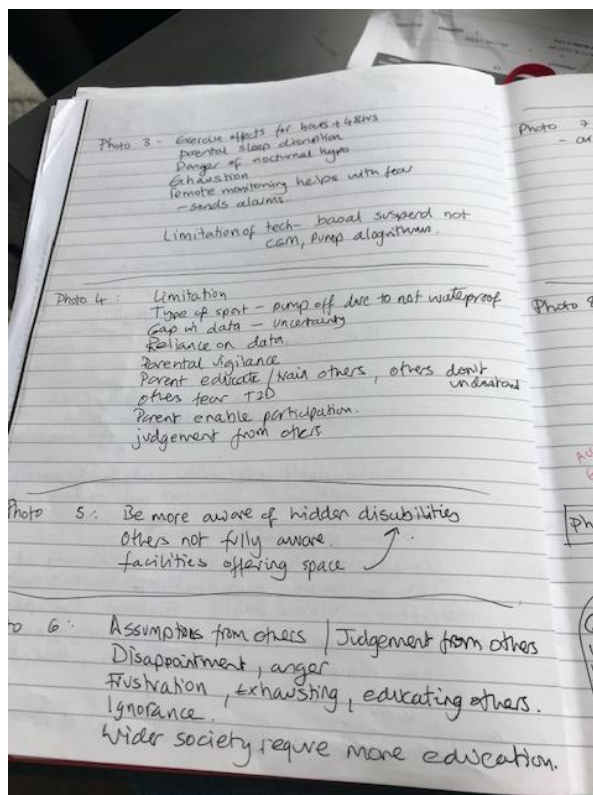 Photo 3 - Exercise effects for hours + 48hrs
parental sleep disruption
Danger of nocturnal hypo
Exhaustion
remote monitoring helps with fear
- sends alarms
Limitation of tech - basal suspend not
CGM, pump alogrithms.
Photo 4 : Limitation
Type of sport - pump off due to not waterproof
Gap in data - uncertainty
Reliance on data
Parental vigilance
Parent educate / train others, others don't
understand
others fear T1D
Parent enable participation.
judgement from others
Photo 5 : Be more aware of hidden disabilities
Others not fully aware.
facilities offering space
6 : Assumptions from others / Judgement from others
Disappointment, anger
Frustration, Exhausting, educating others.
Ignorance.
Wider society require more education.
Photo 7
Photo 8
Ph